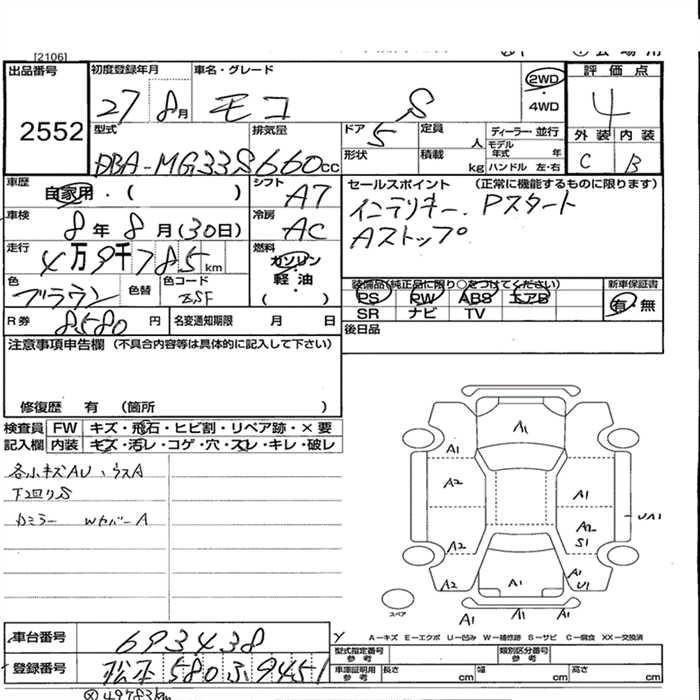 [2106]
出品番号
2552
初度登録年月
27 8月
車名・グレード
モコ S
2WD
4WD
評価点
4
外装 内装
C B
型式
DBA-MG33S
排気量
660cc
ドア
5
定員
人
形状
積載
kg
ディーラー・並行
モデル
年式 年
ハンドル 左・右
車歴
自家用・( )
シフト
A7
車検
8年8月(30日)
冷房
AC
走行
4万9千785km
燃料
ガソリン
軽・油
( )
色
ブラウン
色替
色コード
R券
8580円
名変通知期限 月 日
セールスポイント (正常に機能するものに限ります)
インテリキー. Pスタート
Aストップ
装備品(純正品に限り○をつけてください)
PS PW ABS エアB
SR ナビ TV
新車保証書
有 無
後日品
注意事項申告欄 (不具合内容等は具体的に記入して下さい)
修復歴 有 (箇所 )
検査員 FW キズ・飛石・ヒビ割・リペア跡・×要
記入欄 内装 キズ・汚レ・コゲ・穴・スレ・キレ・破レ
各小キズAU、ウスA
下回りS
カミラー WカバーA
A1
A1
A2
A1
A2
S1
UA1
A2
A1
A2
A1
U1
A1
A1
スペア
A－キズ E－エクボ U－凹み W－補修跡 S－サビ C－腐食 XX－交換済
車台番号
693438
登録番号
松本 580 ふ 9451
型式指定番号
参考
類別区分番号
参考
車庫証明用
参考
長さ cm 幅 cm 高さ cm
49783km